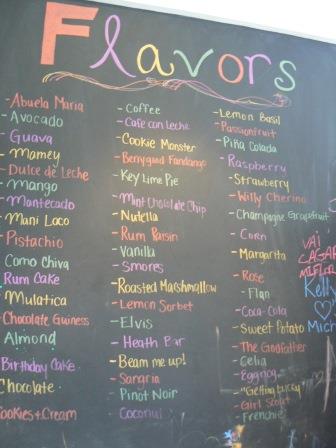 Flavors
-Abuela Maria
-Avocado
-Guava
-Mamey
-Dulce de Leche
-Mango
-Mantecado
-Mani Loco
-Pistachio
Como Chiva
Rum Cake
-Mulatica
-Chocolate Guiness
-Almond
Birthday Cake
Chocolate
Cookies+Cream
-Coffee
-Cafe con Leche
-Cookie Monster
-Berrygood Fandango
-Key Lime Pie
-Mint Chocolate Chip
-Nutella
-Rum Raisin
-Vanilla
-Smores
-Roasted Marshmallow
-Lemon Sorbet
-Elvis
-Heath Bar
-Beam me up!
-Sangria
-Pinot Noir
-Coconut
-Lemon Basil
-Passionfruit
-Piña Colada
-Raspberry
-Strawberry
-Willy Cherino
-Champagne Grapefruit
-Corn
-Margarita
-Rose
-Flan
-Coca-Cola
-Sweet Potato
-The Godfather
-Celia
-Eggnog
-"Getting Lucky"
-Girl Scout
-Frenchie
VAI
CAGAR
Kelly
Mich